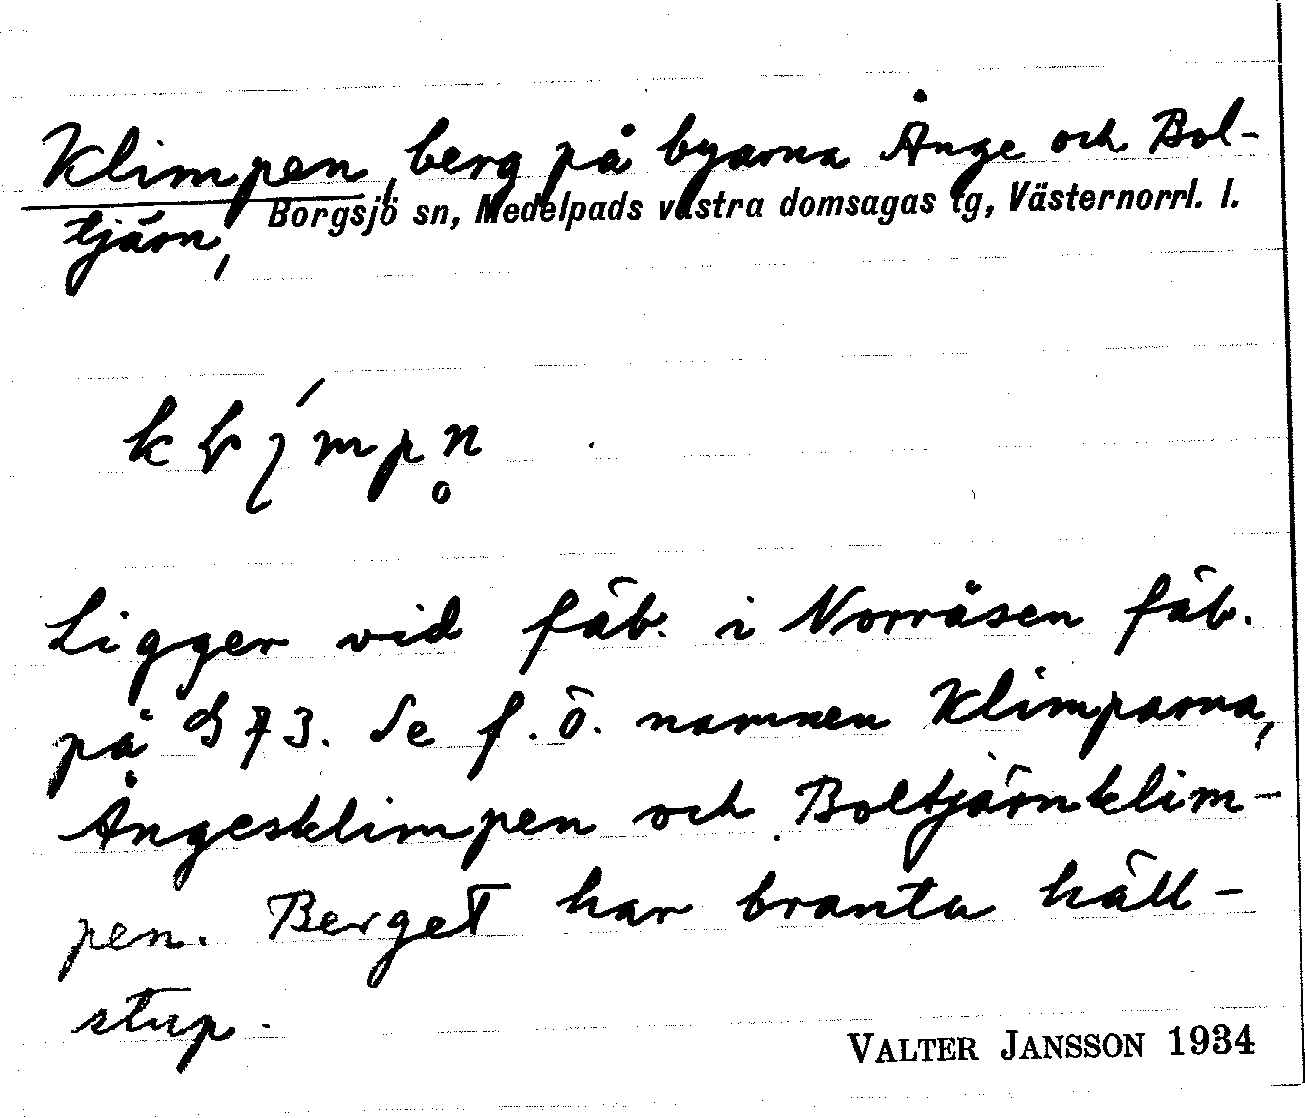 Klimpen, berg på byarna Ånge och Bol-
tjärn,
Borgsjö sn, Medelpads västra domsagas tg, Västernorrl. l.
Ligger vid fäb. i Norråsen fäb.
på 73. Se f. ö. namnen Klimparna,
Ångesklimpen och Boltjärnklim-
pen. Berget har branta häll-
stup.
VALTER JANSSON 1934